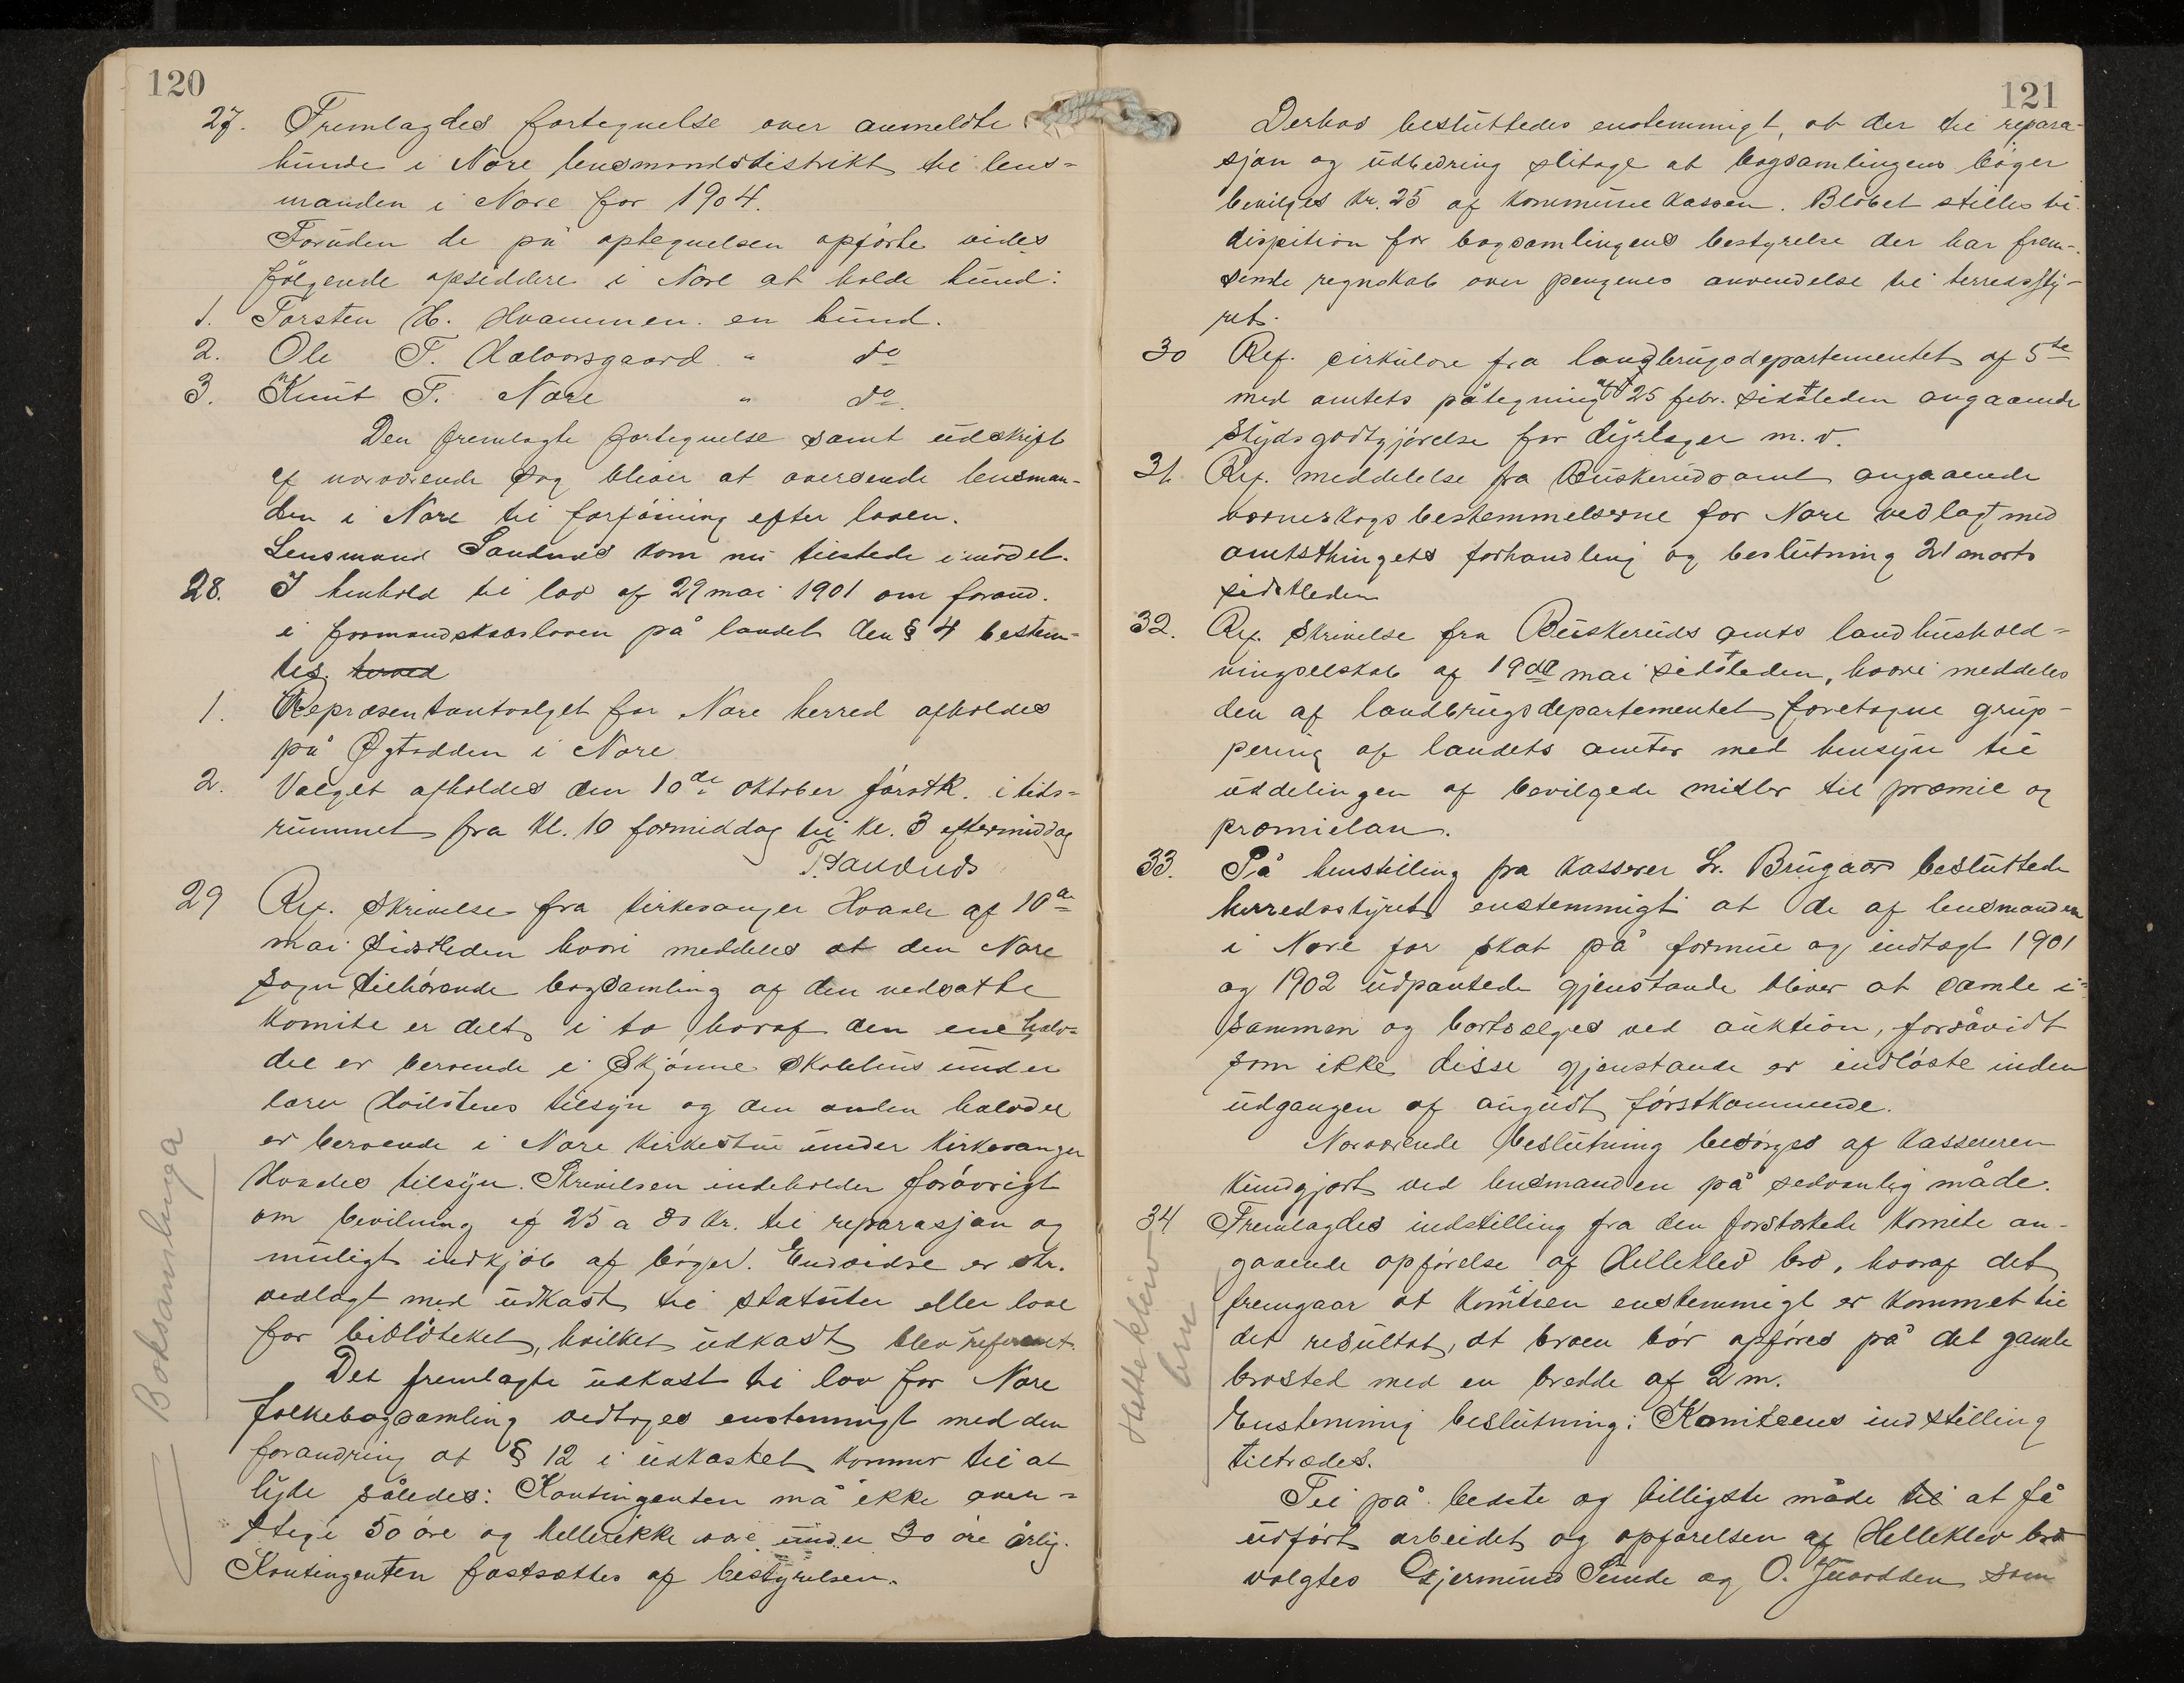 120
27. Fremlagdes fortegnelse over anmeldte
hunde i Nore lensmandsdistrikt til lens-
manden i Nore for 1904.
Foruden de på optegnelsen opførte vides
følgende opsiddere i Nore at holde hund:
1. Torsten H. Hvammen. en hund.
2. Ole T. Halvorsgaard " do
3. Knut T. Nore " do.
Den fremlagte fortegnelse samt udskrift
af nærværende sag bliver at oversende lensman-
den i Nore til forføining efter loven.
Lensmand Sandnes kom nu tilstede i mødet.
28. I henhold til lov af 29 mai 1901 om forand.
i formandskabsloven på landet den § 4 bestem-
tes. herved
1. Repræsentantvalget for Nore herred afholdes
på i Nore
2. Valget afholdes den 10de oktober førstk. i tids-
rummet fra kl. 10 formiddag til kl. 3 eftermiddag
T. Sandnes
29 Ref. skrivelse fra kirkesanger Hvaale af 10de
mai sidstleden hvori meddeles at den Nore
sogn tilhørende bogsamling af den nedsatte
komite er delt i to hvoraf den ene halv-
del er beroende i Skjønne skolehus under
lærer tilsyn og den anden halvdel
er beroende i Nore kirkestue under kirkesanger
Hvaales tilsyn. Skrivelsen indeholder forøvrigt
om bevilning af 25 a 30 kr. til reparasjon og
muligt indkjøb af bøger. Endvidre er skr.
vedlagt med udkast til statuter eller love
for biblioteket, hvilket udkast blev referert.
Det fremlagte udkast til lov for Nore
folkebogsamling vedtoges enstemmigt med den
forandring at § 12 i udkastet kommer til at
lyde således: Kontingenten må ikke over-
stige 50 øre og heller ikke være under 30 øre årlig.
Kontingenten fastsættes af bestyrelsen.
Boksamlinga
121
Derhos besluttedes enstemmigt, at der til repara-
sjon og udbedring slitage at bogsamlingens bøger
bevilges kr. 25 af kommunekassen. Bløbet stilles til
dispition for bogsamlingens bestyrelse der har frem-
sende regnskab over pengenes anvendelse til herredssty-
ret.
30 Ref. cirkulære fra landbrugsdepartementet af 5te
med amtets påtegning af 25 febr. sidstleden angaaende
skydsgodtgjørelse for dyrlæger m. v.
31. Ref. meddelelse fra Buskeruds amt angaaende
værneskogsbestemmelserne for Nore vedlagt med
amtsthingets forhandling og beslutning 21 marts
sidstleden
32. Ref. skrivelse fra Buskeruds amts landhushold-
ningselskab af 19de mai sidstleden, hvori meddeles
den af landbrugsdepartementet foretagne grup-
pering af landets amter med hensyn til
uddelingen af bevilgede midler til præmie og
præmielån.
33. På henstilling fra kasserer Lr. Brugaard besluttede
herredsstyret enstemmigt at de af lensmanden
i Nore for skat på formue og indtægt 1901
og 1902 udpantede gjenstande bliver at samle i-
sammen og bortsælges ved auktion, forsåvidt
som ikke disse gjenstande er indløste inden
udgangen af august førstkommende.
Nærværende beslutning besørges af kassereren
kundgjort ved lensmanden på sedvanlig måde.
34 Fremlagdes indstilling fra den forstærkede komite an-
gaaende opførelse af Helleklev bro, hvoraf det
fremgaar at komiteen enstemmigt er kommet til
det resultat, at broen bør opføres på det gamle
brosted med en bredde af 2 m.
Enstemmig beslutning: Komiteens indstilling
tiltrædes.
Til på bedste og billigste måde til at få
udført arbeidet og opførelsen af Helleklev bro
valgtes Gjermund Sunde og O. som
Helleklev
bru